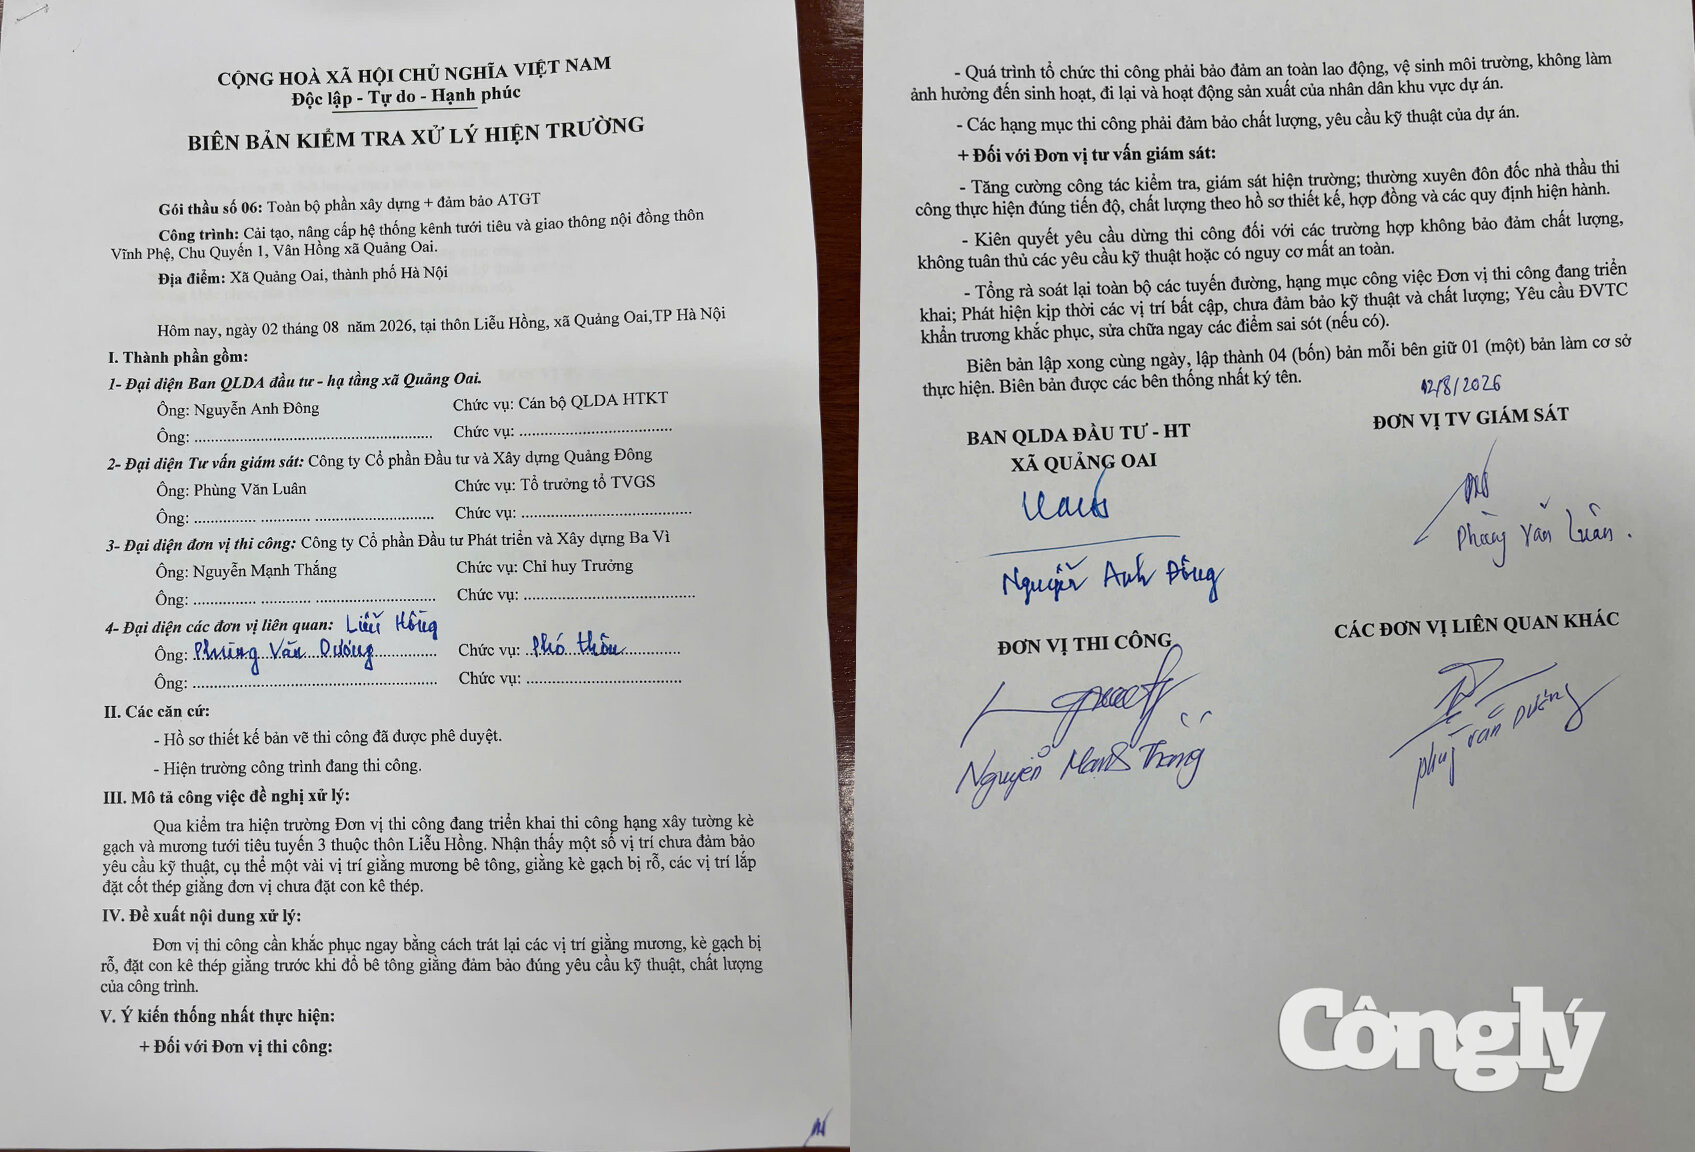 CỘNG HOÀ XÃ HỘI CHỦ NGHĨA VIỆT NAM
Độc lập - Tự do - Hạnh phúc
BIÊN BẢN KIỂM TRA XỬ LÝ HIỆN TRƯỜNG
Gói thầu số 06: Toàn bộ phần xây dựng + đảm bảo ATGT
Công trình: Cải tạo, nâng cấp hệ thống kênh tưới tiêu và giao thông nội đồng thôn
Vĩnh Phệ, Chu Quyến 1, Vân Hồng xã Quảng Oai.
Địa điểm: Xã Quảng Oai, thành phố Hà Nội
Hôm nay, ngày 02 tháng 08 năm 2026, tại thôn Liễu Hồng, xã Quảng Oai,TP Hà Nội
I. Thành phần gồm:
1- Đại diện Ban QLDA đầu tư - hạ tầng xã Quảng Oai.
Ông: Nguyễn Anh Đông Chức vụ: Cán bộ QLDA HTKT
Ông: .................................................... Chức vụ: .................................
2- Đại diện Tư vấn giám sát: Công ty Cổ phần Đầu tư và Xây dựng Quảng Đông
Ông: Phùng Văn Luân Chức vụ: Tổ trưởng tổ TVGS
Ông: .............. ........... .......................... Chức vụ: .....................................
3- Đại diện đơn vị thi công: Công ty Cổ phần Đầu tư Phát triển và Xây dựng Ba Vì
Ông: Nguyễn Mạnh Thắng Chức vụ: Chỉ huy Trưởng
Ông: .............. ........... .......................... Chức vụ: .....................................
4- Đại diện các đơn vị liên quan: Liễu Hồng
Ông: Phùng Văn Dương Chức vụ: Phó thôn
Ông: ..................................................... Chức vụ: ..................................
II. Các căn cứ:
- Hồ sơ thiết kế bản vẽ thi công đã được phê duyệt.
- Hiện trường công trình đang thi công.
III. Mô tả công việc đề nghị xử lý:
Qua kiểm tra hiện trường Đơn vị thi công đang triển khai thi công hạng xây tường kè
gạch và mương tưới tiêu tuyến 3 thuộc thôn Liễu Hồng. Nhận thấy một số vị trí chưa đảm bảo
yêu cầu kỹ thuật, cụ thể một vài vị trí giằng mương bê tông, giằng kè gạch bị rỗ, các vị trí lắp
đặt cốt thép giằng đơn vị chưa đặt con kê thép.
IV. Đề xuất nội dung xử lý:
Đơn vị thi công cần khắc phục ngay bằng cách trát lại các vị trí giằng mương, kè gạch bị
rỗ, đặt con kê thép giằng trước khi đổ bê tông giằng đảm bảo đúng yêu cầu kỹ thuật, chất lượng
của công trình.
V. Ý kiến thống nhất thực hiện:
+ Đối với Đơn vị thi công:
- Quá trình tổ chức thi công phải bảo đảm an toàn lao động, vệ sinh môi trường, không làm
ảnh hưởng đến sinh hoạt, đi lại và hoạt động sản xuất của nhân dân khu vực dự án.
- Các hạng mục thi công phải đảm bảo chất lượng, yêu cầu kỹ thuật của dự án.
+ Đối với Đơn vị tư vấn giám sát:
- Tăng cường công tác kiểm tra, giám sát hiện trường; thường xuyên đôn đốc nhà thầu thi
công thực hiện đúng tiến độ, chất lượng theo hồ sơ thiết kế, hợp đồng và các quy định hiện hành.
- Kiên quyết yêu cầu dừng thi công đối với các trường hợp không bảo đảm chất lượng,
không tuân thủ các yêu cầu kỹ thuật hoặc có nguy cơ mất an toàn.
- Tổng rà soát lại toàn bộ các tuyến đường, hạng mục công việc Đơn vị thi công đang triển
khai; Phát hiện kịp thời các vị trí bất cập, chưa đảm bảo kỹ thuật và chất lượng; Yêu cầu ĐVTC
khẩn trương khắc phục, sửa chữa ngay các điểm sai sót (nếu có).
Biên bản lập xong cùng ngày, lập thành 04 (bốn) bản mỗi bên giữ 01 (một) bản làm cơ sở
thực hiện. Biên bản được các bên thống nhất ký tên.
/8/2026
BAN QLDA ĐẦU TƯ - HT ĐƠN VỊ TV GIÁM SÁT
XÃ QUẢNG OAI
Phùng Văn Luân.
Nguyễn Anh Đông
ĐƠN VỊ THI CÔNG CÁC ĐƠN VỊ LIÊN QUAN KHÁC
Phùng Văn Dương
Nguyễn Mạnh Thắng
Cônglý